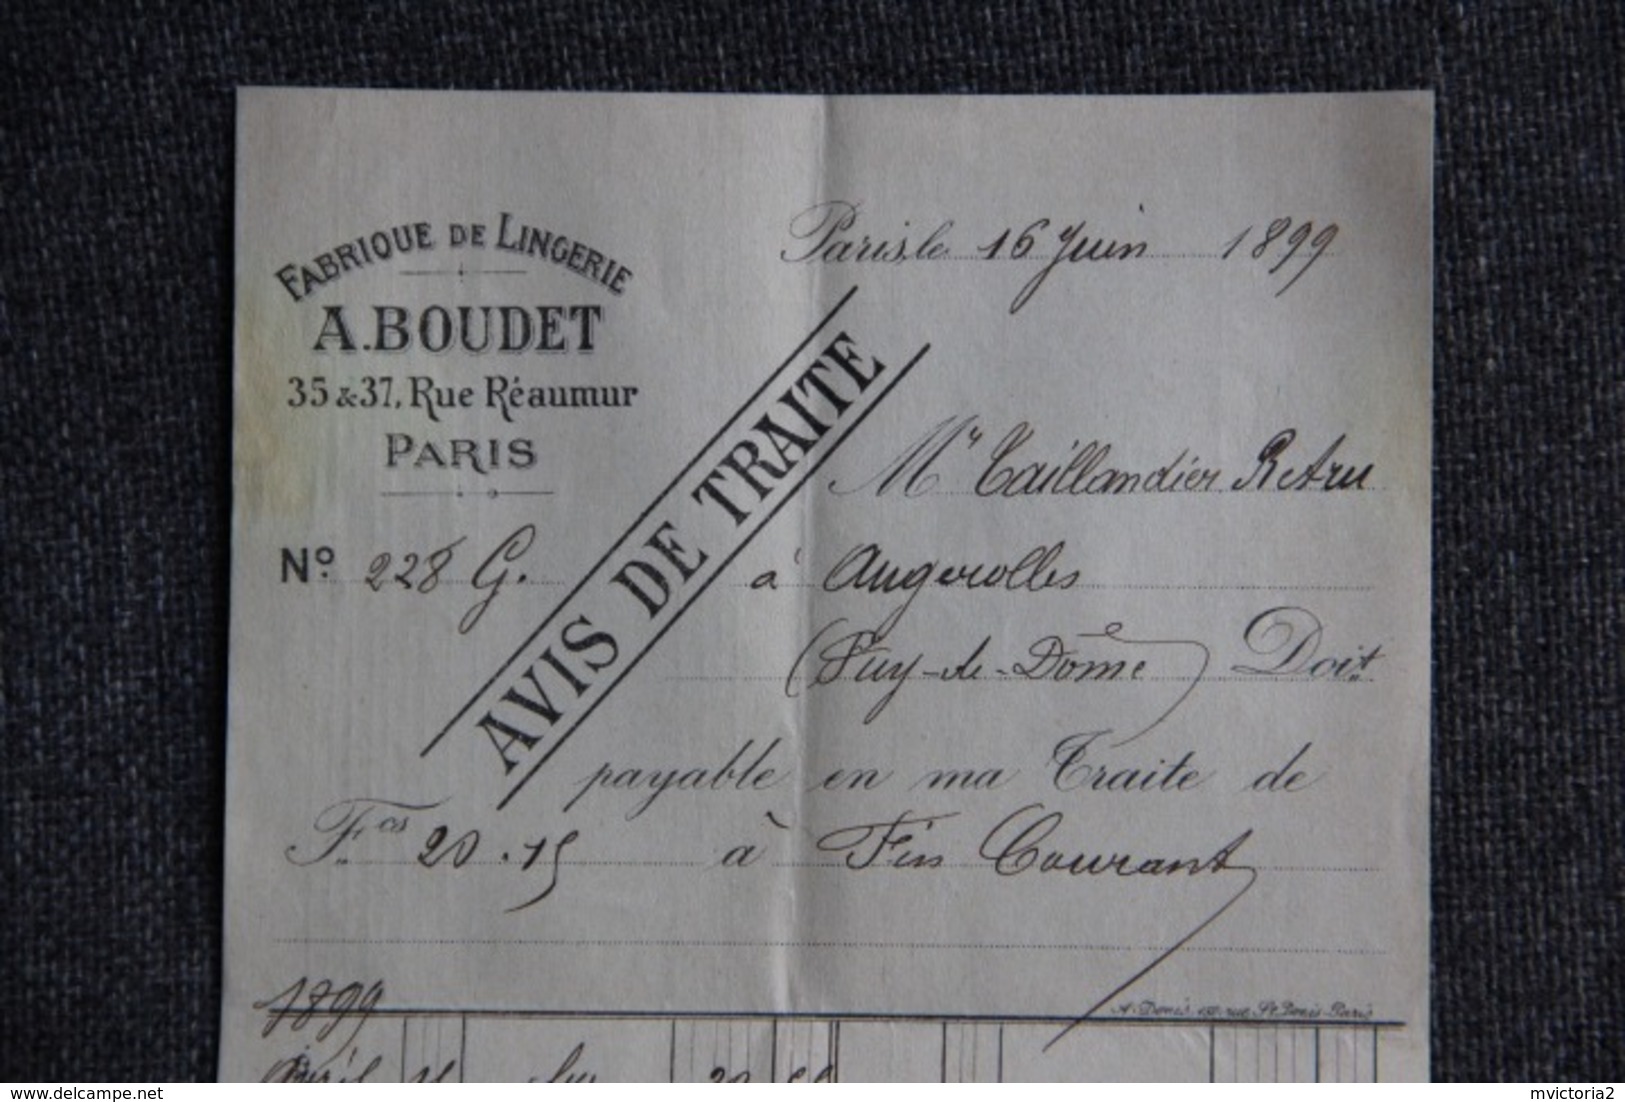 FABRIQUE DE LINGERIE
A. BOUDET
35 & 37, Rue Réaumur
PARIS
Paris, le 16 Juin 1899
AVIS DE TRAITE
Mr Taillandier
No. 228 G.
à Augerolles
(Puy-de-Dôme) Doit
payable en ma Traite de
Fcs 20.15 à Fin Courant
A. Denis, rue St. Denis Paris
1899
Avril
delcampe.net
mvictoria2